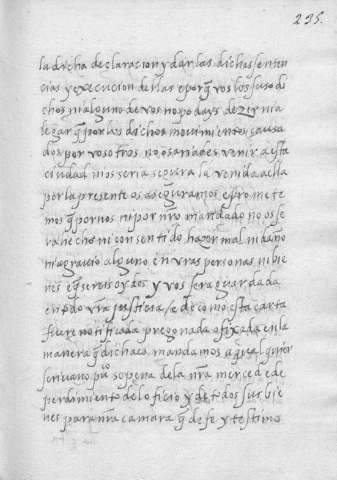 235.
la dicha declaracion y dar las dichas senten
cias y execucion dellas e porq̃ vos los suso di
chos ni alguno de vos no podays dezir ni a
legar q̃ por los dichos movimientos causa
dos por vosotros no osariades venir a esta
ciudad ni os seria segura la venida a ella
por la presente os aseguramos e prometo
mos q̃ por nos ni por nr̃o mandado no os se
ra hecho ni consentido hazer mal ni daño
ni agravio alguno en vr̃as personas ni bie
nes e q̃ sereis oydos y vos sera guardada
en todo vr̃a justicia / e de como esta carta
fuere notificada pregonada o fixada en la
manera q̃ dicha es mandamos a qual quier
scrivano pu^co so pena de la nr̃a merced e de
perdimiento del oficio y de todos sus bie
nes para nr̃a camara q̃ de fe y testimo